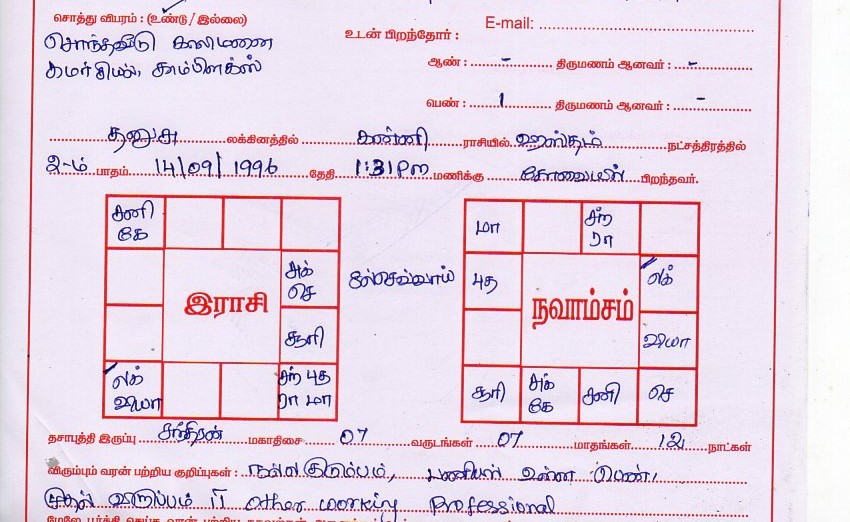 சொத்து விபரம் : (உண்டு / இல்லை)
E-mail:
சொந்தவீடு காலிமனை
உடன் பிறந்தோர் :
கமர்சியல் காம்ப்ளக்ஸ்
ஆண் : - திருமணம் ஆனவர் : -
பெண் : 1 திருமணம் ஆனவர் : -
தனுசு லக்கினத்தில் கன்னி ராசியில் ஹஸ்தம் நட்சத்திரத்தில்
2-ம் பாதம் 14/09/1996 தேதி 1:31 PM மணிக்கு கோவையில் பிறந்தவர்.
சனி
கே
அக்
செ
சூரி
லக்
வியா
சந் புத
ரா மா
இராசி
செவ்வாய்
மா
சந்
ரா
புத
லக்
வியா
சூரி
அக்
கே
சனி
செ
நவாம்சம்
தசாபுத்தி இருப்பு சந்திரன் மகாதிசை 07 வருடங்கள் 07 மாதங்கள் 12 நாட்கள்
விரும்பும் வரன் பற்றிய குறிப்புகள் : நல்ல குடும்பம், பணியில் உள்ள பெண்,
முதல் விருப்பம் IT other working Professional